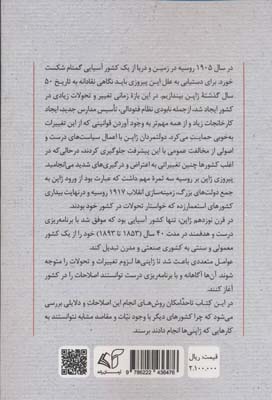 در سال ۱۹۰۵ روسیه در زمین و دریا از یک کشور آسیایی گمنام شکست
خورد. برای دستیابی به علل این پیروزی باید نگاهی نقادانه به تاریخ ۵۰
سال گذشتهٔ ژاپن بیندازیم. در این بازهٔ زمانی تغییر و تحولات زیادی در
کشور ایجاد شد، ازجمله نابودی نظام فئودالی، تأسیس مدارس جدید، ایجاد
کارخانجات زیاد و از همه مهم‌تر به وجود آوردن قوانینی که از این تغییرات
به‌خوبی حمایت می‌کرد. دولتمردان ژاپن با اعمال سیاست‌های درست و
اصولی از مخالفت عمومی با این پیشرفت جلوگیری کردند، درحالی‌که در
اغلب کشورها چنین تغییراتی به اعتراض و درگیری‌های شدید می‌انجامید.
پیروزی ژاپن بر روسیه سه ثمرهٔ مهم داشت که عبارت بود از ورود ژاپن به
جمع دولت‌های بزرگ، زمینه‌سازی انقلاب ۱۹۱۷ روسیه و درنهایت بیداری
کشورهای استعمارزده که خواستار تحولات در کشور خود بودند.
در قرن نوزدهم ژاپن، تنها کشور آسیایی بود که موفق شد با برنامه‌ریزی
درست و هدفمند در مدت ۴۰ سال (۱۸۵۳ تا ۱۸۹۳) کشور درمانده،
معمولی و سنتی به کشوری صنعتی و مدرن تبدیل کند.
عوامل متعددی باعث شد تا ژاپنی‌ها لزوم تغییرات و تحولات را متوجه
شوند. آن‌ها آگاهانه و با برنامه‌ریزی درست توانستند اصلاحات را در کشور
آغاز کنند.
در این کتاب تاحدامکان روش‌های انجام این اصلاحات و دلایلی بررسی
می‌شود که چرا کشورهای دیگر با وجود نیّات و مقاصد مشابه نتوانستند به
کارهایی که ژاپنی‌ها انجام دادند برسند.
قیمت: ریال
۲٫۱۰۰٫۰۰۰
9 786222 436476